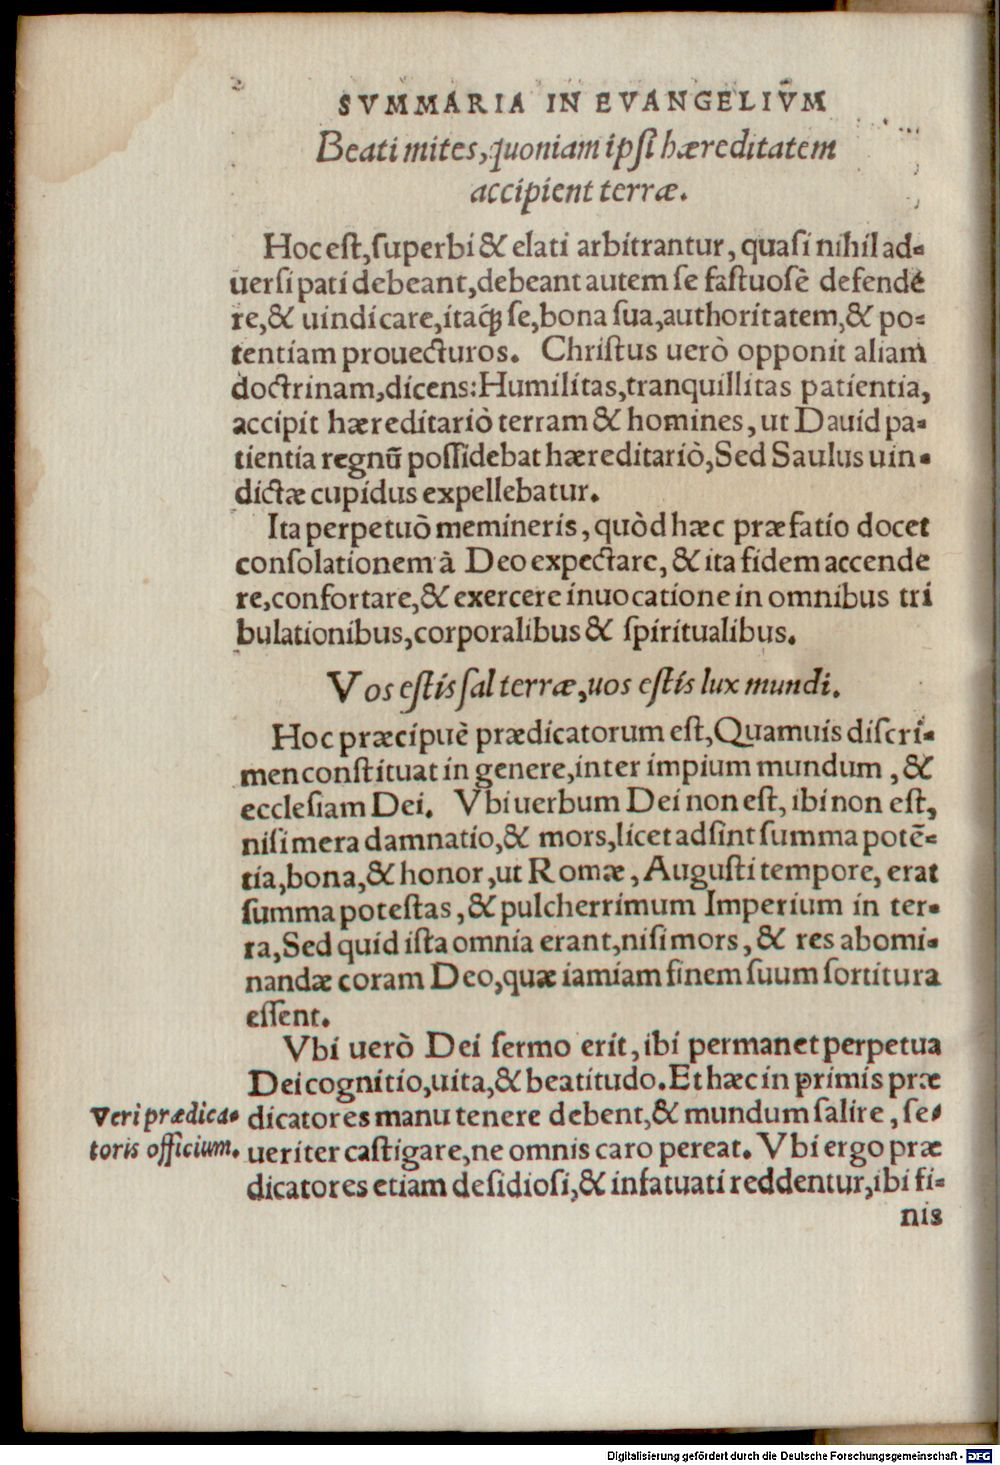 SVMMARIA IN EVANGELIVM
Beati mites, quoniam ipsi hæreditatem
accipient terræ.
Hoc est, superbi & elati arbitrantur, quasi nihil ad-
uersi pati debeant, debeant autem se fastuosè defende
re, & uindicare, itaq́; se, bona sua, authoritatem, & po-
tentiam prouecturos. Christus uerò opponit aliam
doctrinam, dicens: Humilitas, tranquillitas patientia,
accipit hæreditariò terram & homines, ut Dauid pa-
tientia regnũ possidebat hæreditariò, Sed Saulus uin-
dictæ cupidus expellebatur.
Ita perpetuò memineris, quòd hæc præfatio docet
consolationem à Deo expectare, & ita fidem accende
re, confortare, & exercere inuocatione in omnibus tri
bulationibus, corporalibus & spiritualibus.
Vos estis sal terræ, uos estis lux mundi.
Hoc præcipuè prædicatorum est, Quamuis discri-
men constituat in genere, inter impium mundum, &
ecclesiam Dei. Vbi uerbum Dei non est, ibi non est,
nisi mera damnatio, & mors, licet adsint summa potẽ-
tia, bona, & honor, ut Romæ, Augusti tempore, erat
summa potestas, & pulcherrimum Imperium in ter-
ra, Sed quid ista omnia erant, nisi mors, & res abomi-
nandæ coram Deo, quæ iamiam finem suum sortitura
essent.
Vbi uerò Dei sermo erit, ibi permanet perpetua
Dei cognitio, uita, & beatitudo. Et hæc in primis præ
Veri prædica-
toris officium.
dicatores manu tenere debent, & mundum salire, se-
ueriter castigare, ne omnis caro pereat. Vbi ergo præ
dicatores etiam desidiosi, & infatuati reddentur, ibi fi-
nis
Digitalisierung gefördert durch die Deutsche Forschungsgemeinschaft - DFG